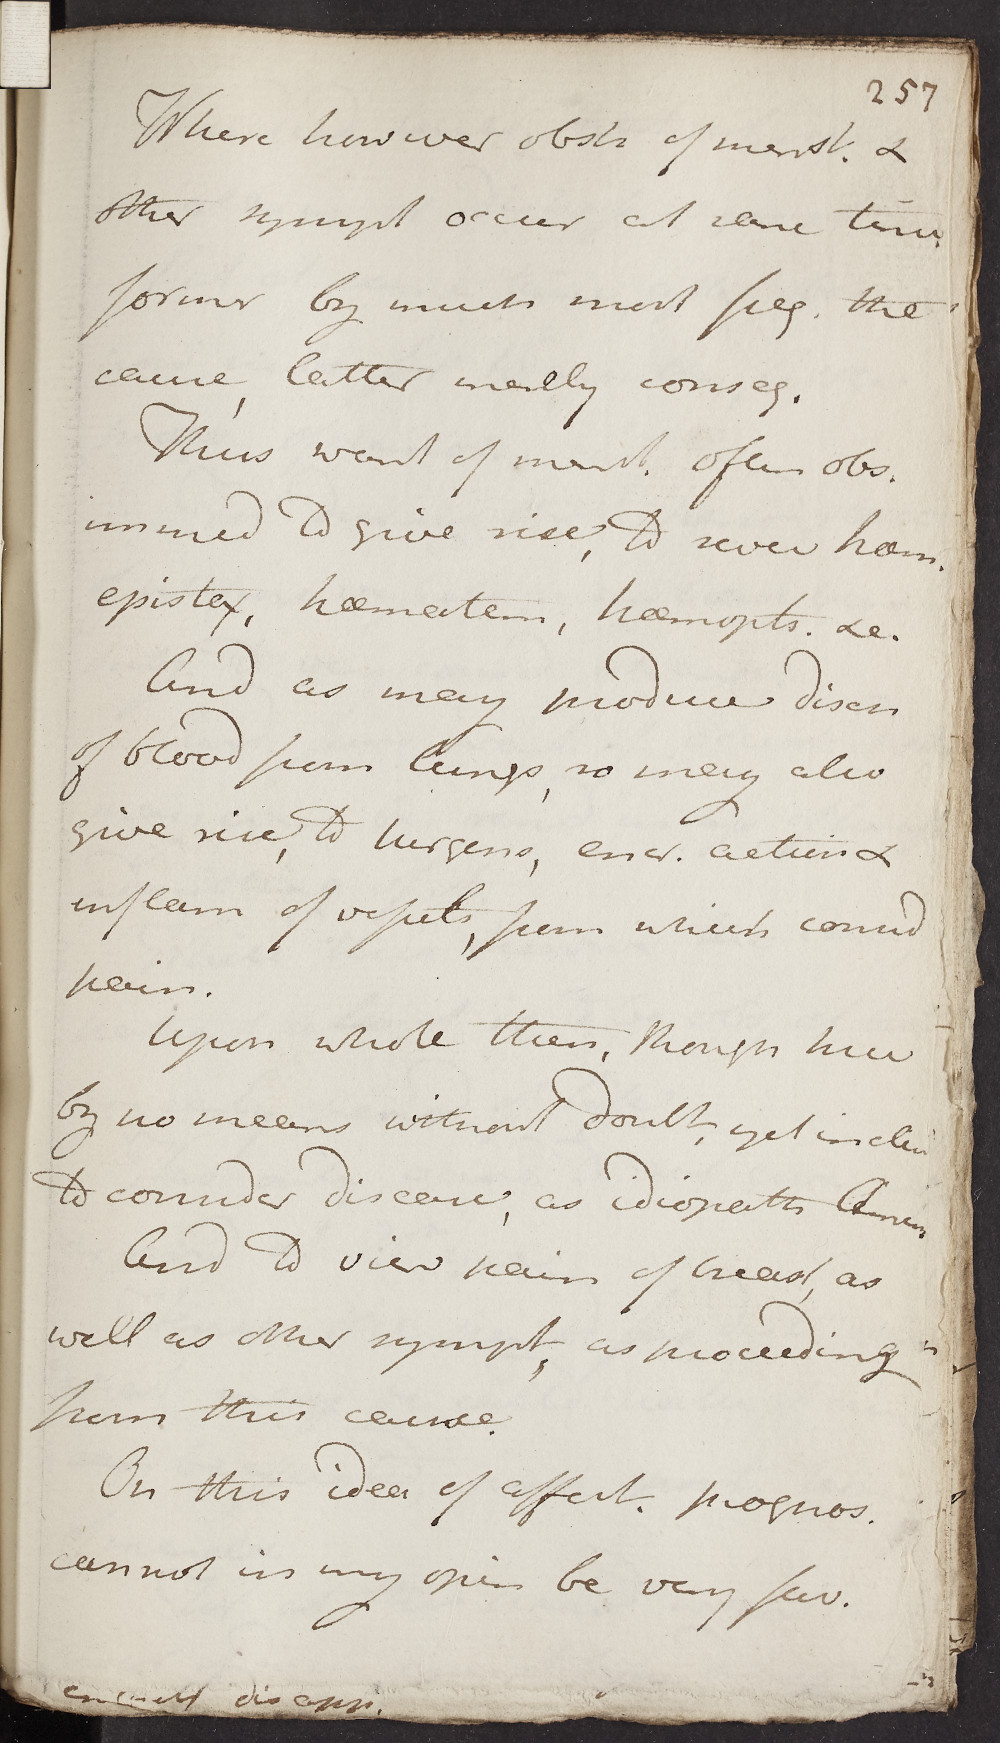 257
Where however obstn of menst. &
other sympt occur at same time.
former by much most freq. the
cause, latter merely conseq.
Thus want of menst. often obs.
immed to give rise, to sever hæm.
epistax, hæmatem, hæmopts. &c.
And as may produce disch
of blood from lungs, so may also
give rise, to turgens, encr. action &
inflam of vessels, from which consid
pain.
Upon whole then, though here
by no means without doubt, yet inclin
to consider disease, as idiopath Amen
And to view pain of breast, as
well as other sympt, as proceeding
from this cause.
On this idea of affect. prognos.
cannot in my opin be very fav.
disapp.